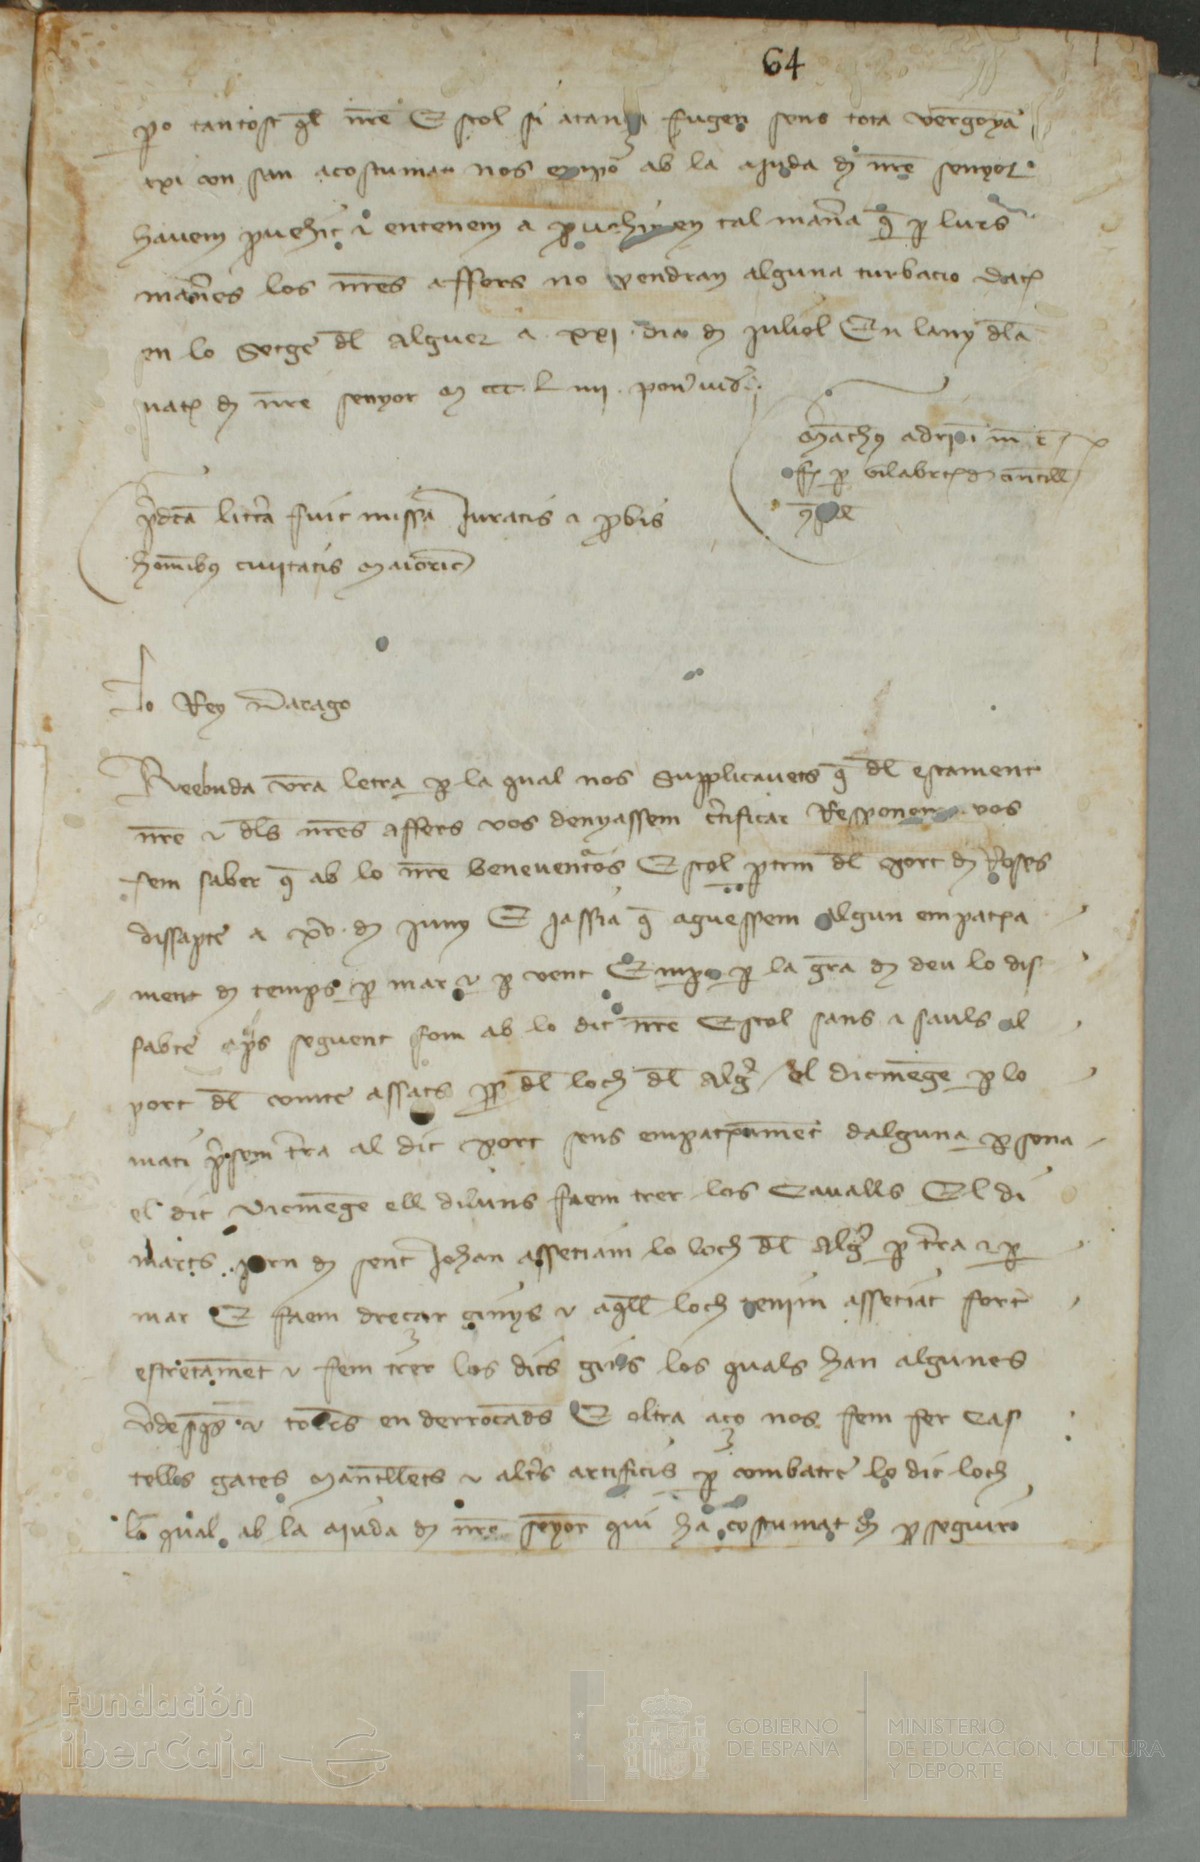 64
po tantost ql nre Estol si atansa fugen sens tota vergonya
axi con san acostumat nos empo ab la ajuda d nre senyor
havem pvehit e entenem a pvehir en tal manera q p lurs
maneres los nres affers no pendran alguna turbacio Dat
en lo Setge dl Alguer a xxi dia d juliol En lany dla
nat d nre senyor M CCC L iiii
Matheus adriani
p̄dcā littera fuit missa Juratis e pbis
hominibus civitatis Maioric
Lo Rey Darago
Reebuda vra letra p la qual nos Supplicavets q dl estament
nre e dls nres affers vos denyassem certificar Responem vos
fem saber q ab lo nre beneventros Estol ptim dl port d Roses
dissapte a xv d juny E jassia q aguessem algun empatxa
ment d temps p mar e p vent Empo p la gra d deu lo dis
sabte aps seguent fom ab lo dit nre Estol sans e sauls al
port dl comte assats pp dl loch dl Alg El dicmenge p lo
mati psem tra al dit port sens empatxament dalguna psona
el dit dicmenge ell diluns faem trer los Cavalls El di
marts jorn d sent Johan assetiam lo loch dl Alg p tra e p
mar E faem dreçar ginys e aqll loch tenim assetiat fort
estretament e fem trer los dits ginys los quals han algunes
e torres enderrocads E oltra aço nos fem fer Cas
tells gates Mantllets e altrs artificis p combatre lo dit loch
lo qual ab la ajuda d nre senyor qui ha costumat d pseguir
Fundación
iberCaja
GOBIERNO
DE ESPAÑA
MINISTERIO
DE EDUCACIÓN, CULTURA
Y DEPORTE